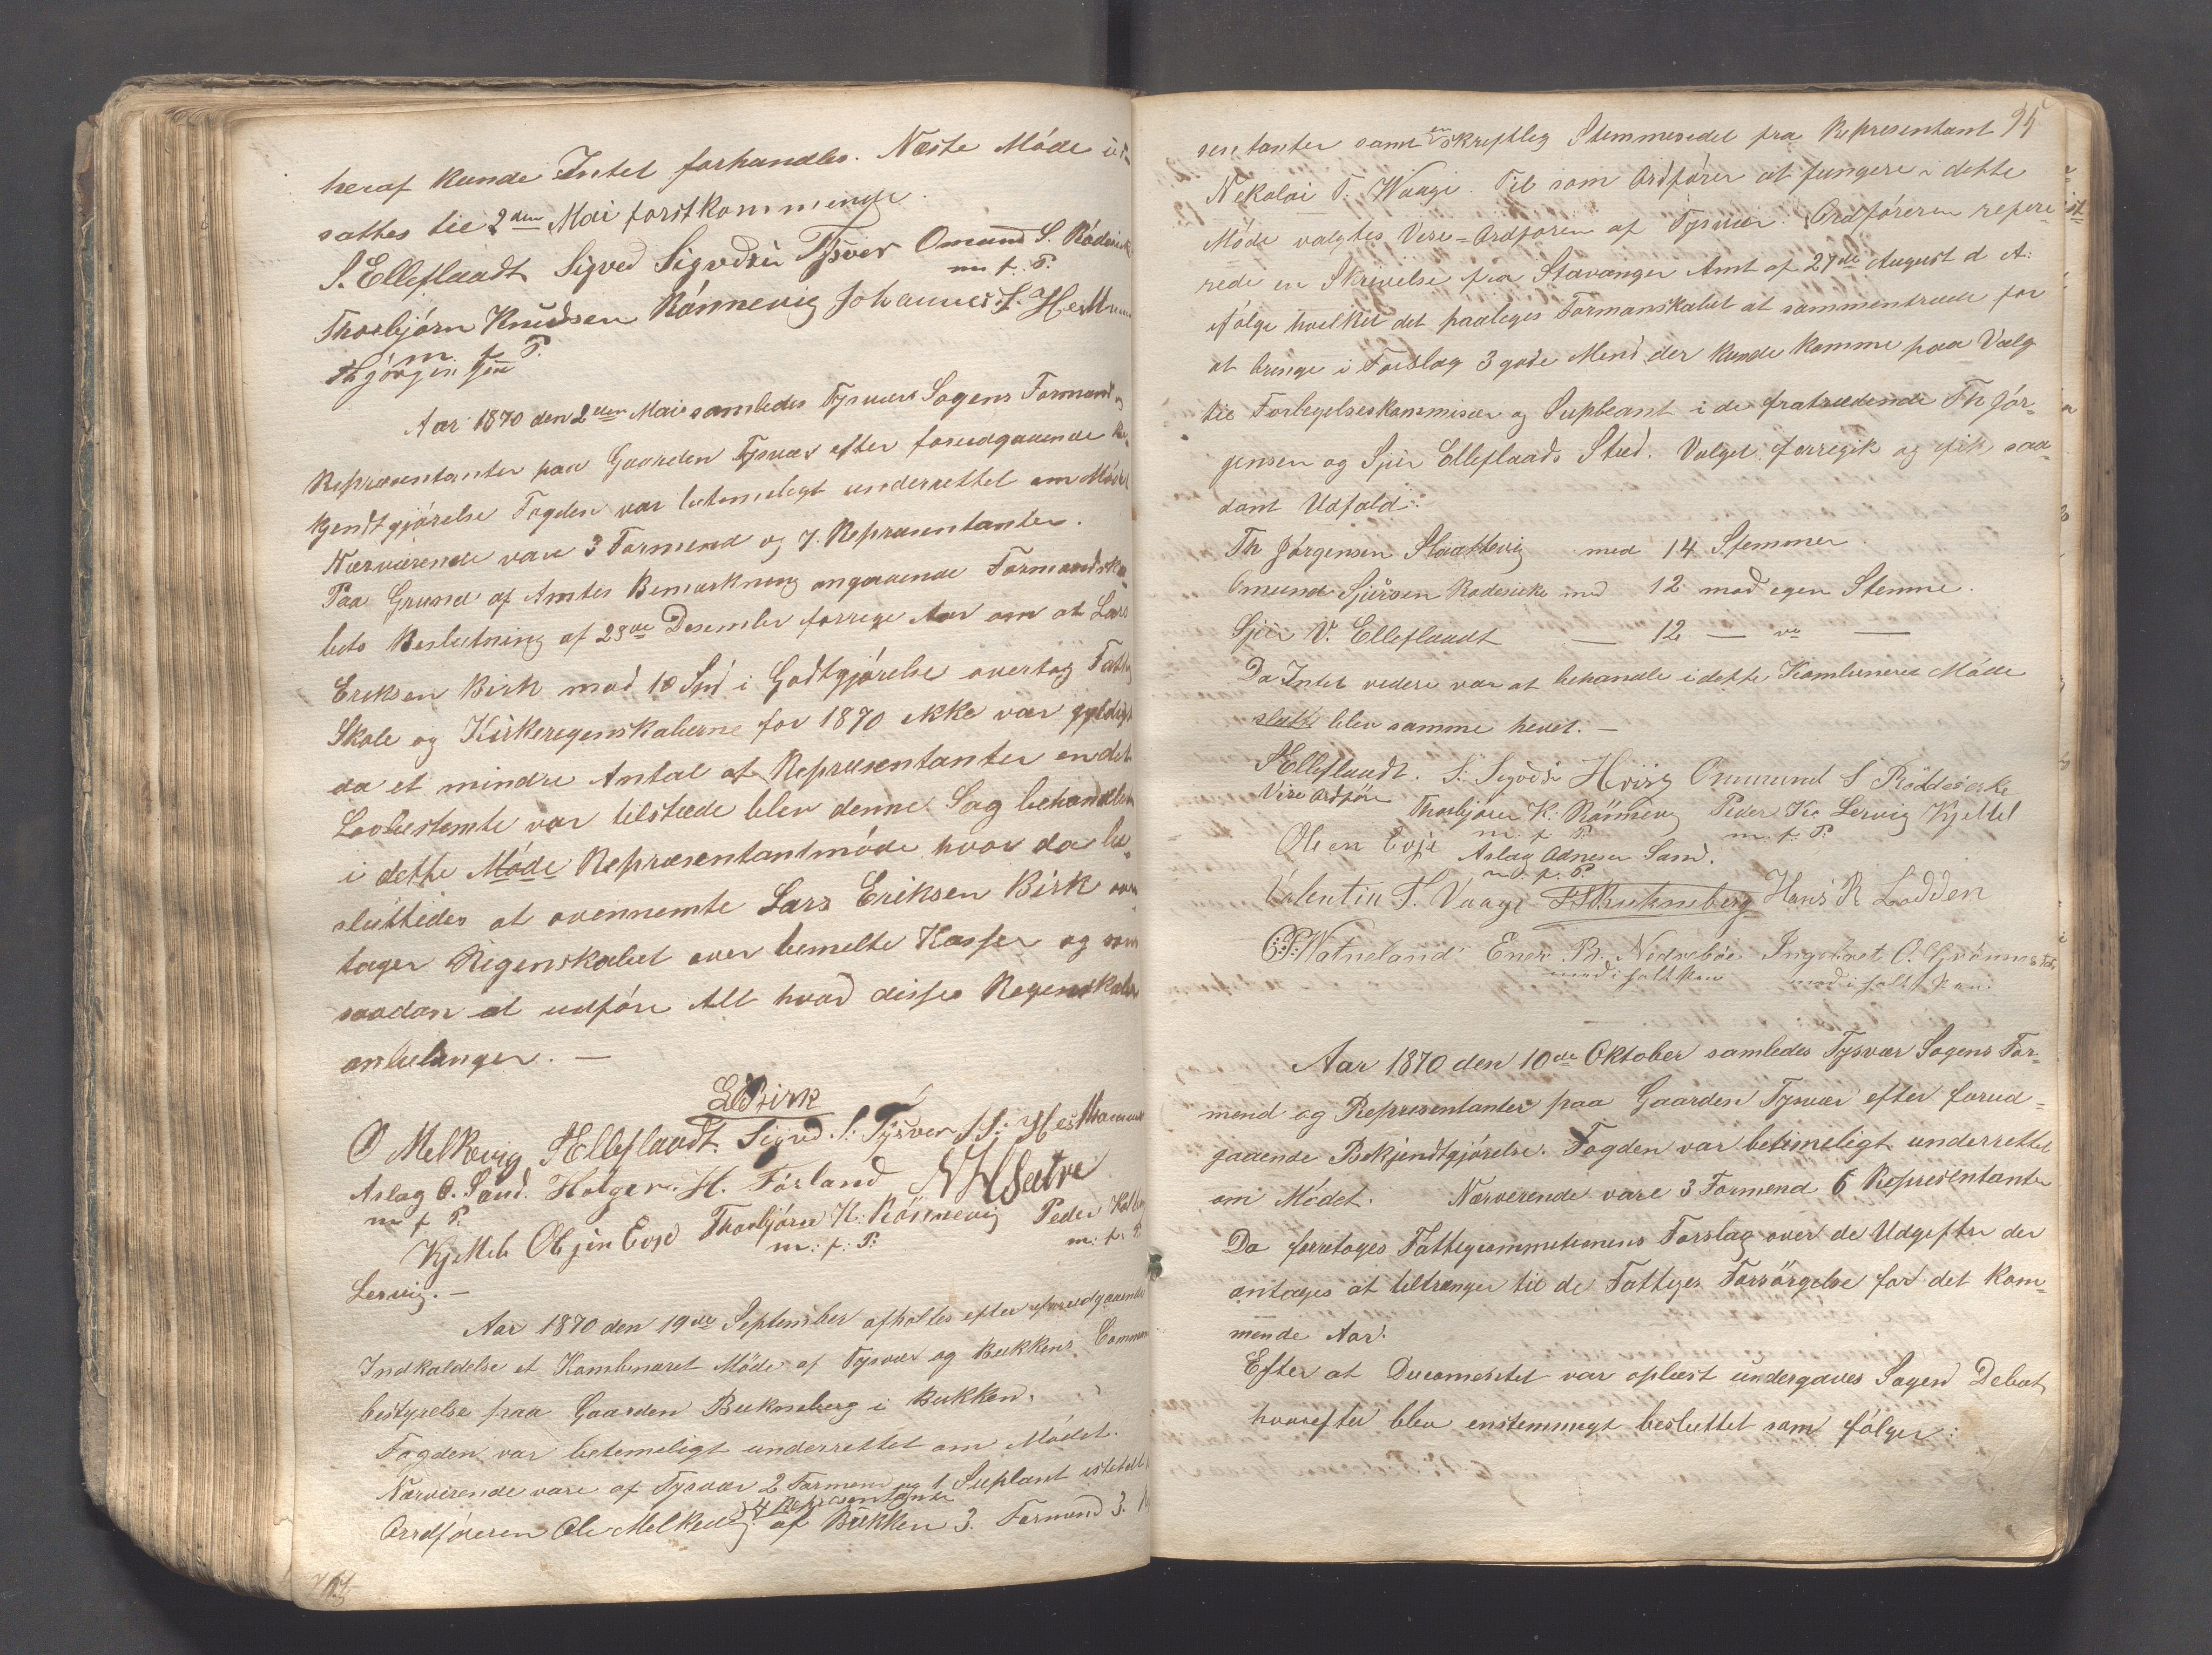 heraf kunde Intet forhandles. Næste Møde
sattes til 2den Mai førstkommende.
S. Elleflaadt Sigved Sigvedsen Tysver Omund S. Rödesicke
m. f. P.
Thorbjörn Knudsen Rönnevig Johannes S. Hesthammer
m. f. P.
Aar 1870 den 2den Mai samledes Tysvær Sogens Formænd og
Repræsentanter paa Gaarden Tysvær efter forudgaaende Be-
kjendtgjørelse Fogden var betimeligt underrettet om Mødet
Nærværende vare 3 Formænd og 7. Repræsentanter.
Paa Grund af Amtes Bemærkning angaaende Formandska-
bets Beslutning af 28de Desember forrige Aar om at Lars
Eriksen Birk mod 10 Spd i Godtgjørelse overtog Fattig
Skole og Kirkeregenskaberne for 1870 ikke var gyldigt
da et mindre Antal af Repræsentanter end det
Lovbestemte var tilstæde blev denne Sag behandlet
i dette Møde Repræsentantmøde hvor da be-
sluttedes at ovennemte Lars Eriksen Birk over
tager Regenskabet over bemelte Kasser og som
saadan at udføre Alt hvad disse Regenskaber
anbelanger. —
LEBirk
O Melkevig SElleflaadt. Sigved S: Tysver J. S: Hesthammer
Aslag O. Sand. Holger H. Førland NHSætre
m f P.
Kjettel Olsen Evje Thorbjörn K: Rönnevig Peder
m: f: P: m: f: P.
Lervig. —
Aar 1870 den 19de September afholtes efter forudgaaende
Indkaldelse et Kombineret Møde af Tysvær og Bukkens Commune
bestyrelse paa Gaarden Bukneberg i Bukken.
Fogden var betimeligt underrettet om Mødet.
Nærværende vare af Tysvær 2 Formænd og 1 Suplant istedet
4 Repræsentanter
Ordføreren Ole Melkevig af Bukken 3. Formænd 3.
95
sentanter samt en skriftlig Stemmesedel fra Representant
Nekolai T. Waage. Til som Ordfører at fungere i dette
Møde valgtes Vise-Ordføren af Tysvær. Ordføreren refere-
rede en Skrivelse fra Stavanger Amt af 27de August d A:
ifølge hvilket det paaleges Formanskabet at sammentræde for
at bringe i Forslag 3 gode Mend der kunde komme paa Valg
til Forlegelseskommisær og Supleant i de fratrædende Th Jør-
gensen og Sjur Elleflaads Sted. Valget forregik og fik saa-
dant Udfald:
Th Jørgensen Slaattevig med 14 Stemmer.
Omund Sjursen Rødesicke med 12 mod egen Stemme.
Sjur V. Elleflaadt — 12 — —
Da Intet videre var at behandle i dette Kombineret Møde
blev samme hevet. —
SElleflaadt. S. Sigvds. Hviig Ommund S Röddesicke
Vise Ordfør Thorbjörn K: Rönnevig Peder Lervig Kjettel
m: f: P: m: f: P:
Olsen Evje Aslag Adnesen Sand.
m. f. P.
Valentin T. Vaage Bukneberg Hans R Lodden
Vatneland Ener Nedrebøe Ingebret O. Grönnestad
med i holt Pen med i holt Pen.
Aar 1870 den 10de Oktober samledes Tysvær Sogens For-
mend og Representanter paa Gaarden Tysvær efter forud-
gaaende Bekjendtgjørelse. Fogden var betimeligt underrettet
om Mødet. Nærverende vare 3 Formend 6 Representanter
Da forretoges Fattigcommitionens Forslag over de Udgifter der
antages at tiltrænges til de Fattiges Forsörgelse for det kom-
mende Aar.
Efter at Ducomentet var oplæst undergaves Sagen Debat,
hvorefter blev enstemmigt besluttet som følger: